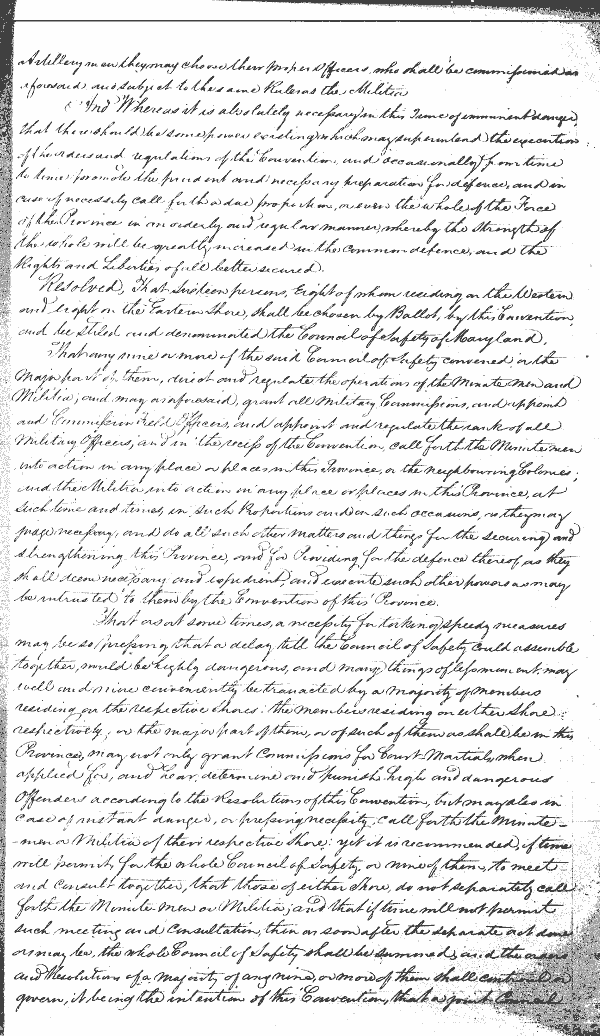 Artillery men they may choose their proper Officers, who shall be commissioned as
aforesaid and subject to the same Rules as the Militia
And Whereas it is absolutely necessary in this Time of imminent danger
that there should be some power existing which may superintend the execution
of the orders and regulations of the Convention, and occasionally from time
to time promote the prudent and necessary preparation for defence, and in
case of necessity call forth a due proportion, or even the whole of the Force
of the Province in an orderly and regular manner, whereby the strength of
the whole will be greatly increased in the common defence, and the
Rights and Liberties of all better secured.
Resolved, That sixteen persons, Eight of whom residing on the Western
and Eight on the Eastern Shore, shall be chosen by Ballot, by this Convention,
and be stiled and denominated the Council of Safety of Maryland.
That any nine or more of the said Council of Safety convened or the
Major part of them, direct and regulate the operations of the Minute Men and
Militia; and may as aforesaid, grant all Military Commissions, and appoint
and Commission Field Officers, and appoint and regulate the rank of all
Military Officers, and in the recess of the Convention, call forth the Minute men
into action in any place or places in this Province, or the neighbouring Colonies;
and the Militia into action in any place or places in this Province, at
such time and times, in such Proportions and on such occasions, as they may
judge necessary, and do all such other matters and things for the securing and
strengthening this Province, and for Providing for the defence thereof, as they
shall deem necessary and expedient, and execute such other powers as may
be intrusted to them by the Convention of this Province.
That as at some times, a necessity for taking speedy measures
may be so pressing that a delay, till the Council of Safety could assemble
together, would be highly dangerous, and many things of less moment may
well and more conveniently be transacted by a majority of members
residing on the respective Shores: the members residing on either Shore
respectively, or the major part of them, or of such of them as shall be in this
Province, may not only grant Commissions for Court Martials, when
applied for, and hear, determine and punish high and dangerous
Offenders according to the Resolutions of this Convention, but may also in
case of instant danger, or pressing necessity, call forth the Minute-
-men or Militia of their respective Shore; yet it is recommended, if time
will permit, for the whole Council of Safety, or nine of them, to meet
and consult together, that those of either Shore, do not separately call
forth the Minute men or Militia; and that if time will not permit
such meeting and Consultation, then as soon after the separate act done
as may be, the whole Council of Safety shall be summoned, and the orders
and Resolutions of a majority of any nine, or more of them shall controul or
govern, it being the intention of this Convention, that a joint Council